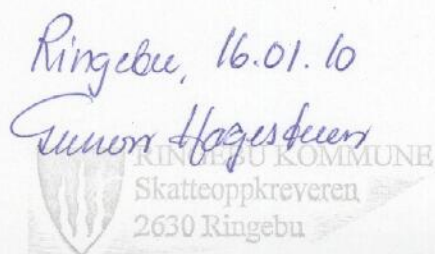 Ringebu, 16.01.10
Gunnor Hagestuen
RINGEBU KOMMUNE
Skatteoppkreveren
2630 Ringebu